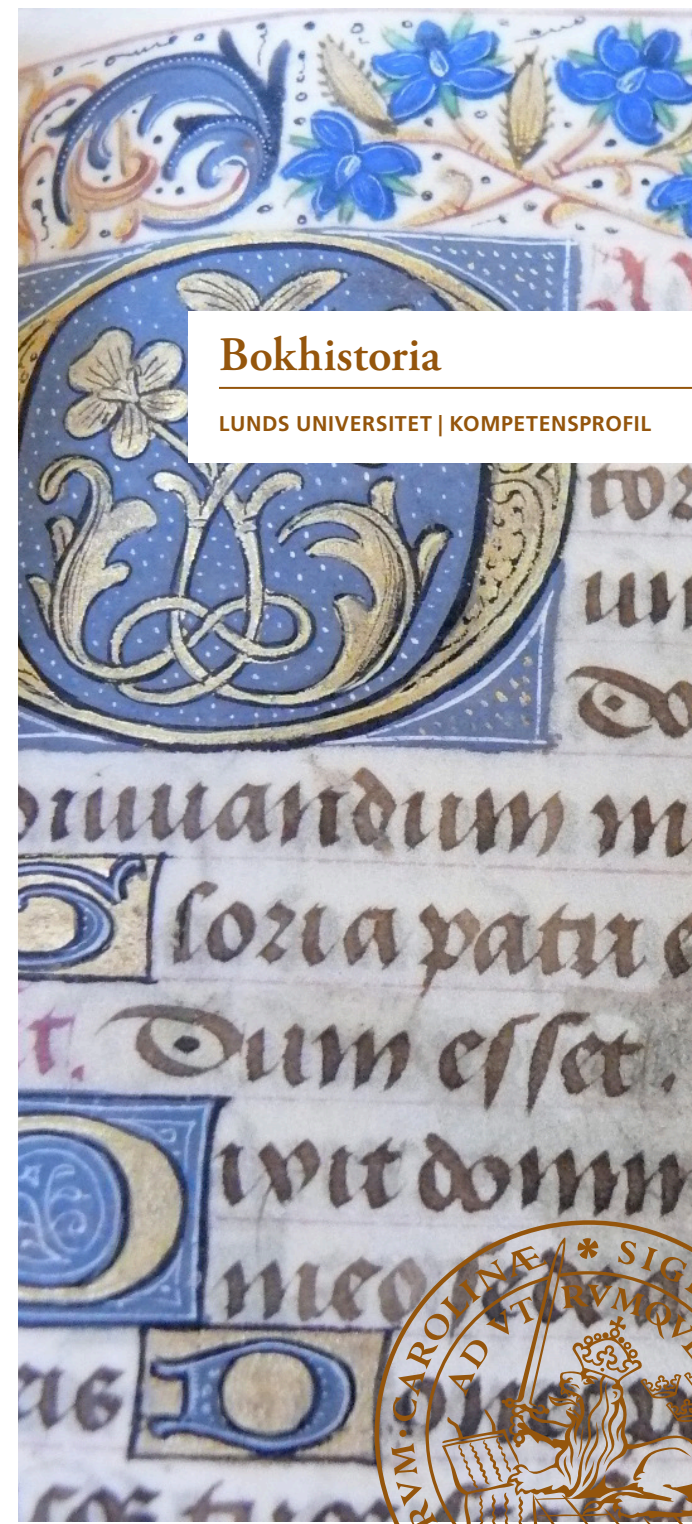 Bokhistoria
LUNDS UNIVERSITET | KOMPETENSPROFIL
tor
un
do
iuuandum m
loria patri e
t. Dum esset.
D ixit domin
meo
D
RVM · CAROLINÆ * SIG
AD VTRVMQVE